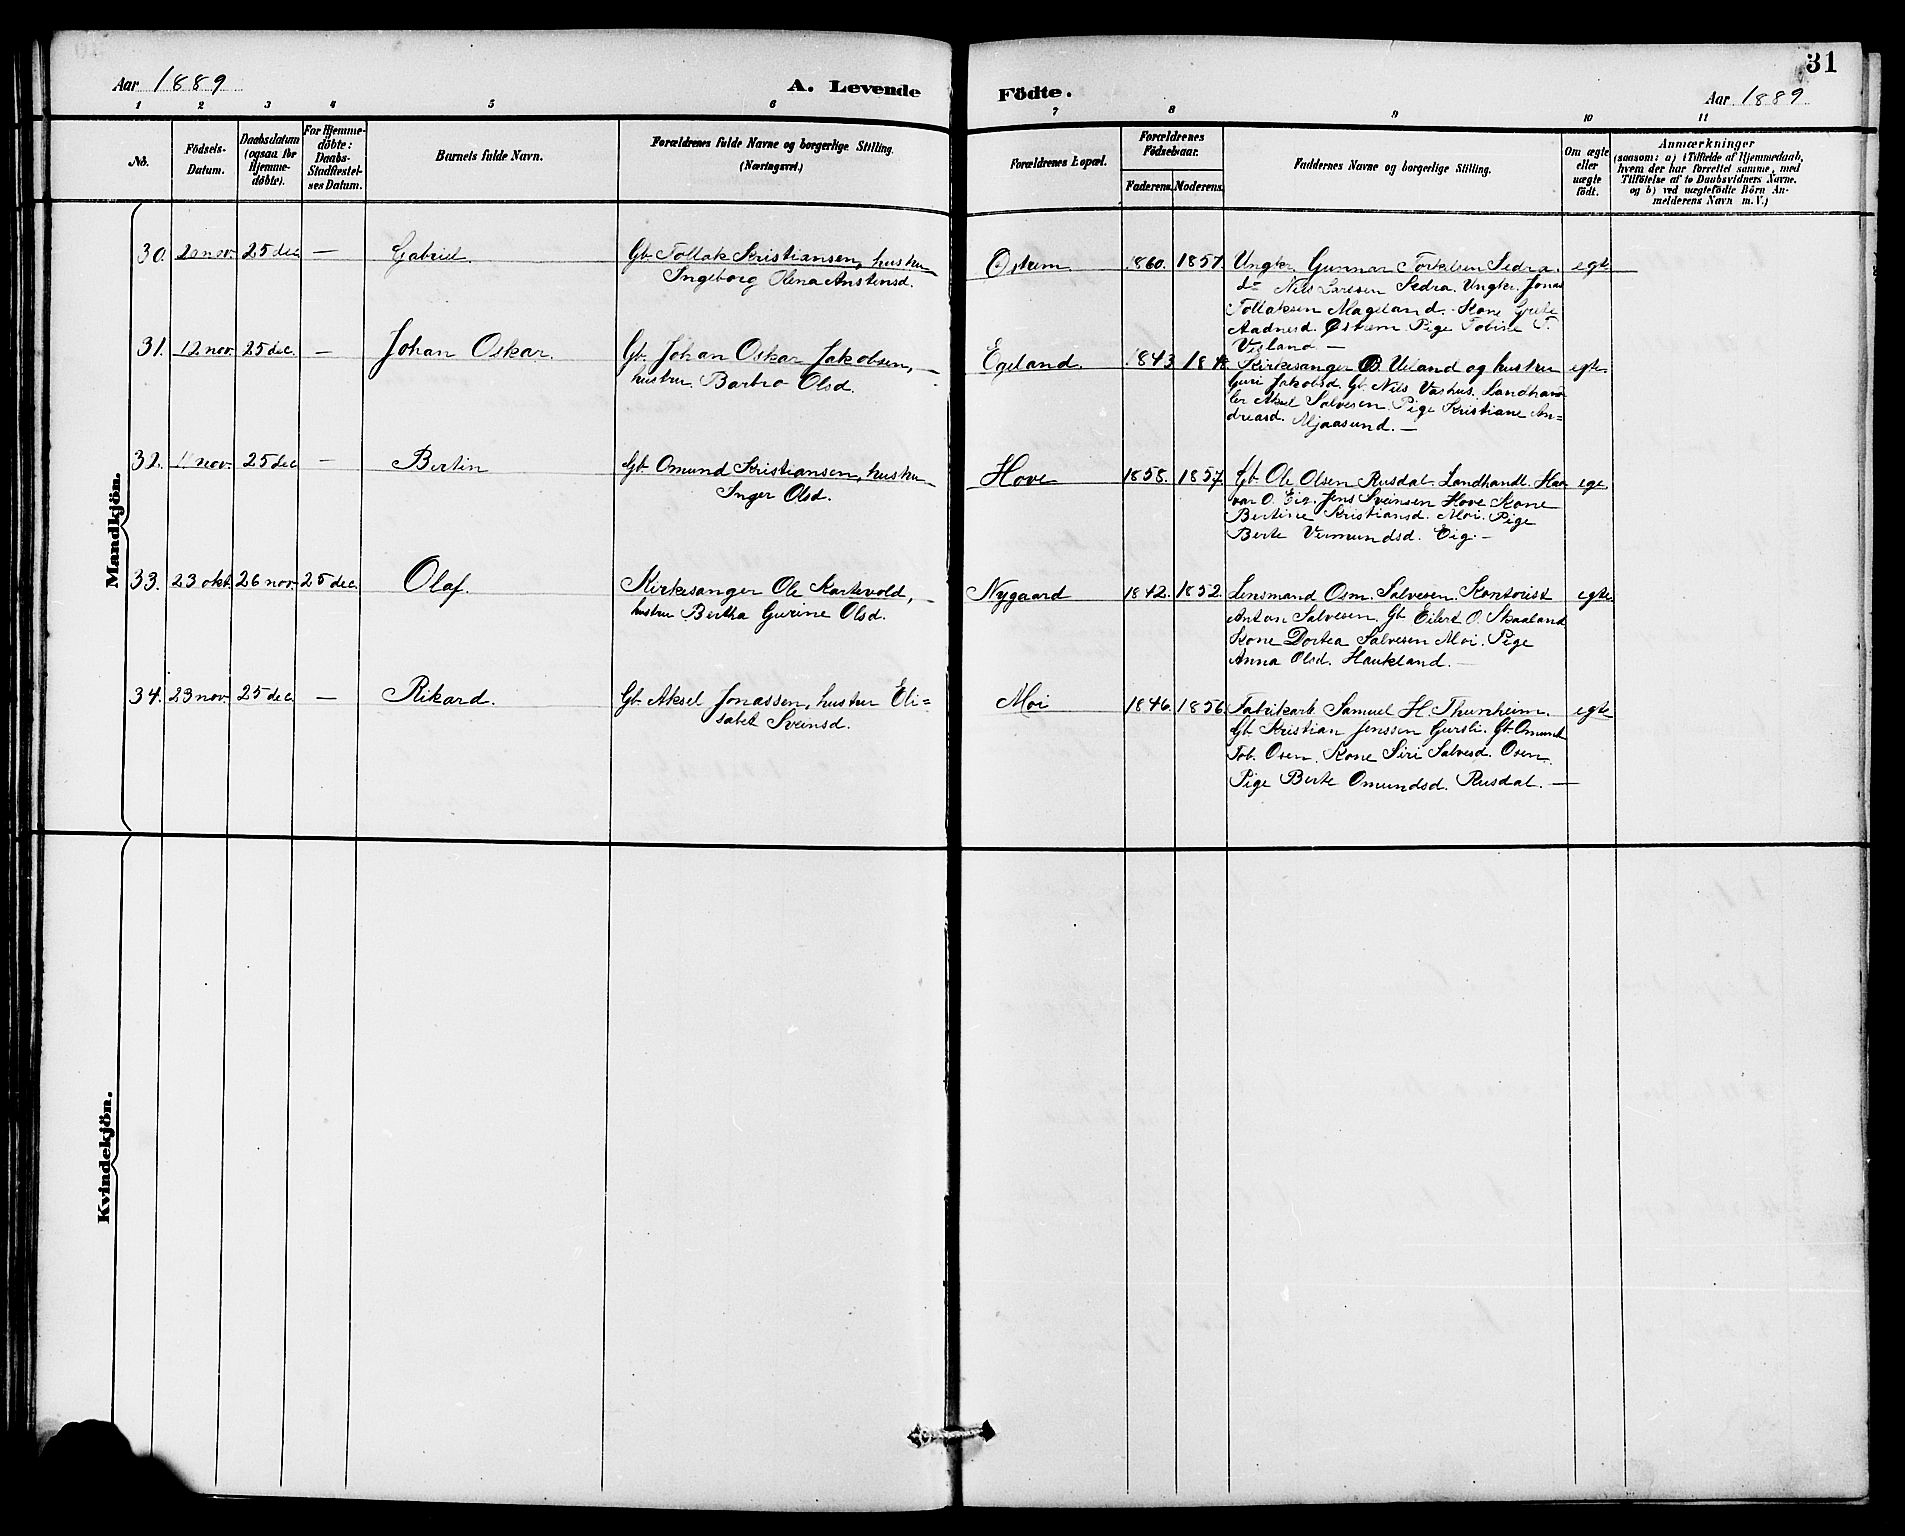 Aar 1889
A. Levende
Födte.
31
Aar 1889
1 2 3 4 5 6 7 8 9 10 11
No.
Födsels-
Datum.
Daabsdatum
(ogsaa for
Hjemme-
döbte).
For Hjemme-
döbte:
Daabs-
Stadfæstel-
ses Datum.
Barnets fulde Navn.
Forældrenes fulde Navne og borgerlige Stilling.
(Næringsvei.)
Forældrenes Bopæl.
Forældrenes
Födselsaar.
Faderens. Moderens.
Faddernes Navne og borgerlige Stilling.
Om ægte
eller
uægte
födt.
Anmærkninger
(saasom: a) i Tilfælde af Hjemmedaab,
hvem der har forrettet samme, med
Tilföielse af to Daabsvidners Navne,
og b) ved uægtefödte Börn An-
melderens Navn m. V.)
Mandkjön.
30. 20 nov. 25 dec — Gabriel Gb. Tollak Kristiansen, hustru Ostrem 1860. 1857 Ungkr. Gunnar Torkelsen Sedra. egte
Ingeborg Olena Anstensd. do Nils Larsen Sedra. Ungkr. Jonas
Tollaksen Mageland. Kone Grete
Aadnesd. Østrem. Pige Tobine T.
Visland —
31. 12 nov 25 dec. — Johan Oskar. Gb. Johan Oskar Jakobsen, — Egeland. 1843 Kirkesanger B. Ueland og hustru egte
hustru Barbro Olsd. Guri Jakobsd. Gb. Nils Vashus. Landhand
ler Aksel Salvesen. Pige Kristiane An=
dreasd. Mjaasund. —
32. nov. 25 dec — Bertin Gb. Omund Kristiansen, hustru Hove 1858. 1857. Gb. Ole Olsen Rusdal. Landhandl. Haa
Inger Olsd. var O. Eig. Jens Sveinsen Hove Kone
Bertine Kristiansd. Moi. Pige
Berte Vermundsd. Eig. —
33. 23 okt. 26 nov. 25 dec. Olaf. Kirkesanger Ole Kartevold, — Nygaard 1842. 1852. Lensmand Osm. Salvesen. Kontorist egte
hustru Bertha Gurine Olsd. Anton Salvesen. Gb. Eilert O. Skaaland
Kone Dortea Salvesen Moi. Pige
Anna Olsd. Haukland. —
34. 23 nov. 25 dec — Rikard. Gb. Aksel Jonassen, hustru Eli= Moi 1846. 1856. Fabrikarb. Samuel H. Thunheim. egte
sabet Sveinsd. Gb. Kristian Jenssen Gursli. Gb. Omund
Tob. Osen. Kone Siri Salvesd. Osen.
Pige Berte Omundsd. Rusdal. —
Kvindekjön.